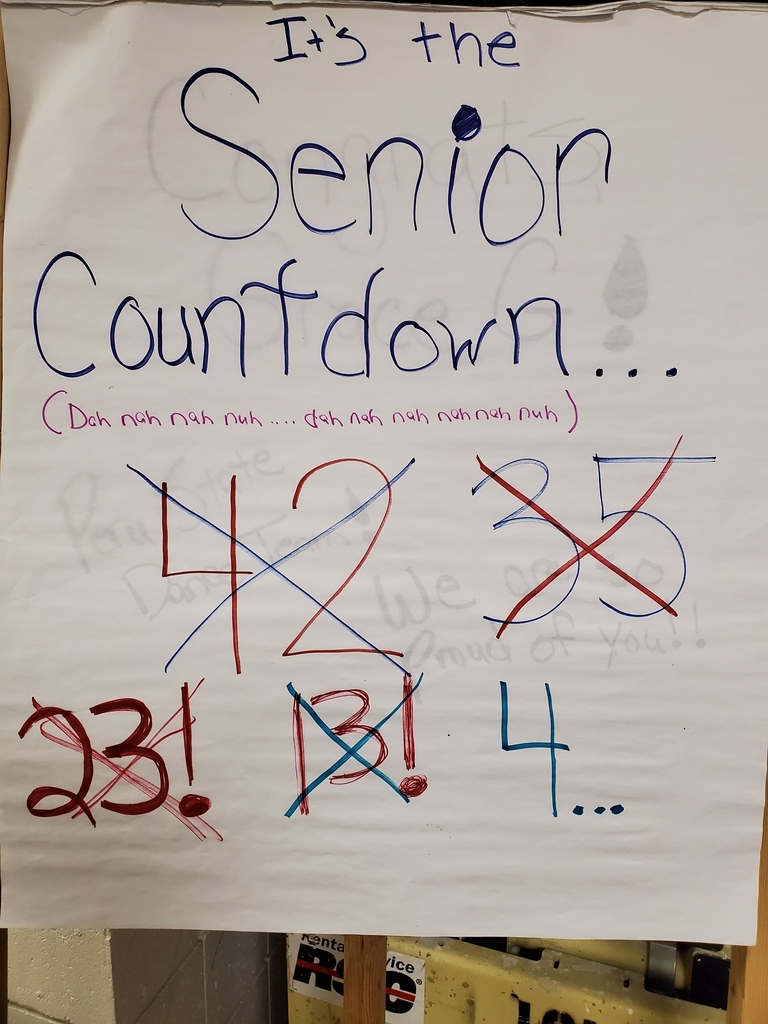 It's the
Senior
Countdown...
(Dah nah nah nuh.... dah nah nah nah nah nuh)
42 35
23! 13! 4...
Congrats
!
Peru State
Dance Team!
We are so
Proud of you!!
Rental Service
RSC